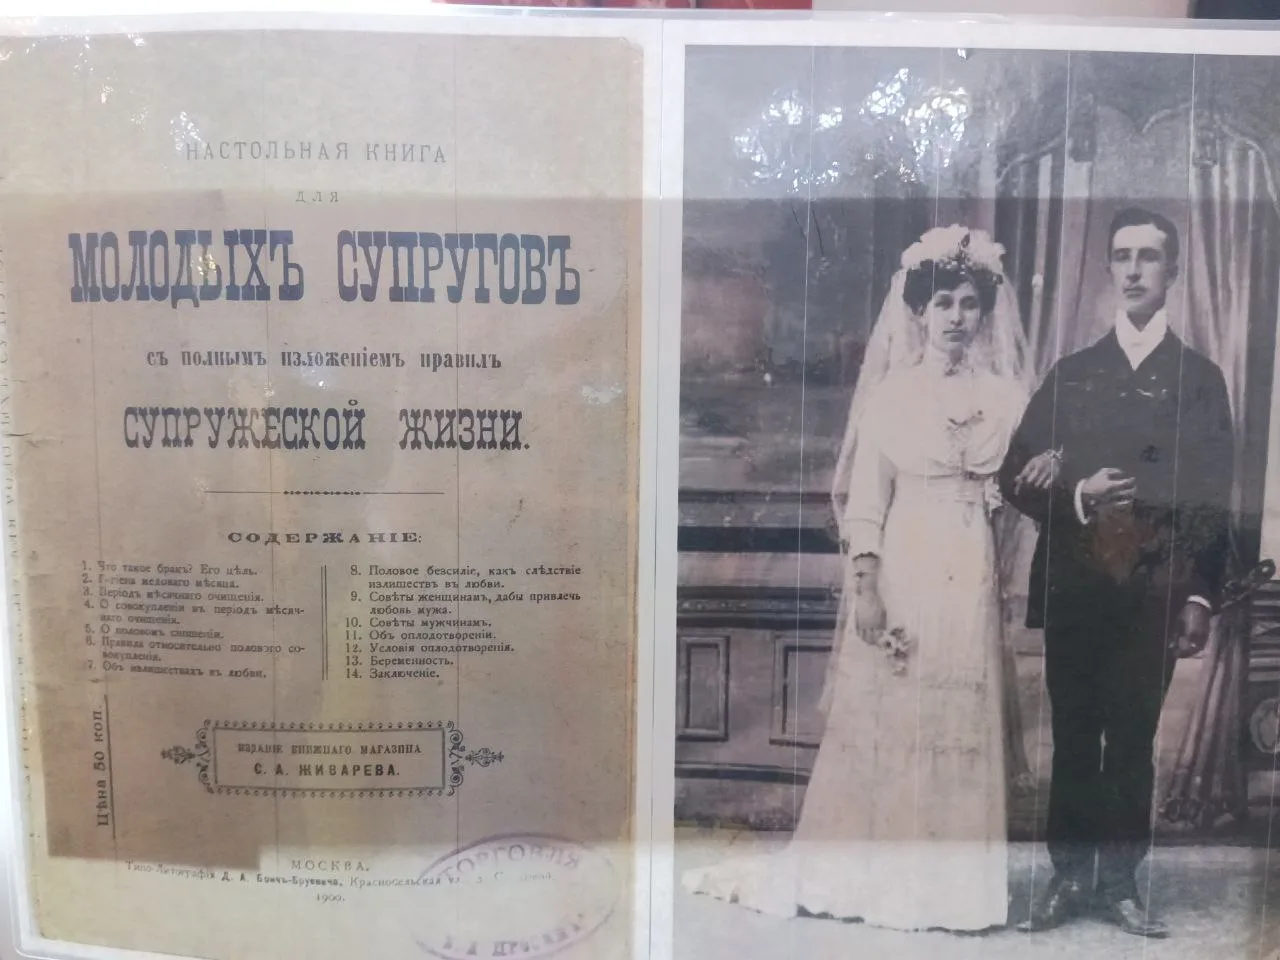 НАСТОЛЬНАЯ КНИГА
ДЛЯ
МОЛОДЫХЪ СУПРУГОВЪ
съ полнымъ изложеніемъ правилъ
СУПРУЖЕСКОЙ ЖИЗНИ.
СОДЕРЖАНІЕ:
1. Что такое бракъ? Его цѣль.
2. Гигіена медоваго мѣсяца.
3. Періодъ мѣсячнаго очищенія.
4. О совокупленіи въ періодъ мѣсяч-
наго очищенія.
5. О половомъ сношеніи.
6. Правила относительно полового со-
вокупленія.
7. Объ излишествахъ въ любви.
8. Половое безсиліе, какъ слѣдствіе
излишествъ въ любви.
9. Совѣты женщинамъ, дабы привлечь
любовь мужа.
10. Совѣты мужчинамъ.
11. Объ оплодотвореніи.
12. Условія оплодотворенія.
13. Беременность.
14. Заключеніе.
Цѣна 50 коп.
ИЗДАНІЕ КНИЖНАГО МАГАЗИНА
С. А. ЖИВАРЕВА.
МОСКВА.
Типо-Литографія Д. А. Бончъ-Бруевича, Красносельская
1900.
ТОРГОВЛЯ